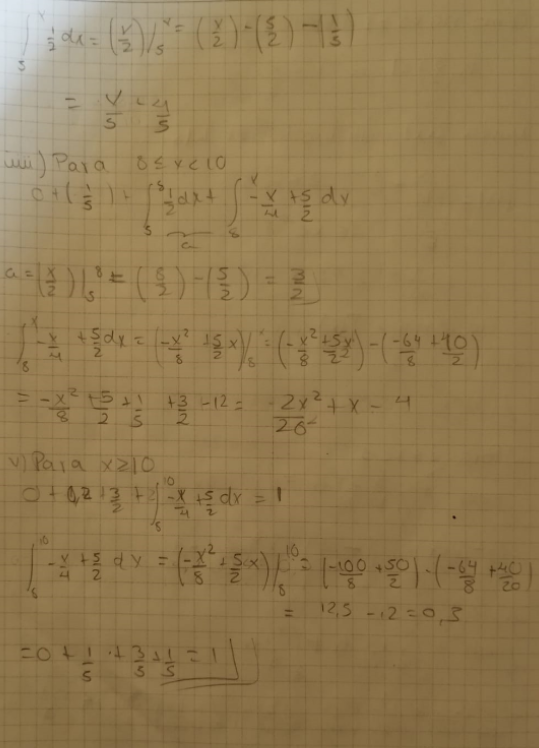 ∫₅ˣ 1/2 dx = (x/2)|₅ˣ = (x/2) - (5/2) - (1/5)
= x/5 - 4/5
iiii) Para 8 ≤ x < 10
0 + (1/5) + ∫₅⁸ 1/2 dx + ∫₈ˣ -x/4 + 5/2 dx
a
a = (x/2)|₅⁸ = (8/2) - (5/2) = 3/2
∫₈ˣ -x/4 + 5/2 dx = (-x²/8 + 5/2 x)|₈ˣ = (-x²/8 + 5x/2) - (-64/8 + 40/2)
= -x²/8 + 5/2 + 1/5 + 3/2 - 12 = -2x²/26 + x - 4
v) Para x ≥ 10
0 + 0,2 + 3/2 + ∫₈¹⁰ -x/4 + 5/2 dx = 1
∫₈¹⁰ -x/4 + 5/2 dx = (-x²/8 + 5/2 x)|₈¹⁰ = (-100/8 + 50/2) - (-64/8 + 40/20)
= 12,5 - 12 = 0,3
= 0 + 1/5 + 3/5 + 1/5 = 1